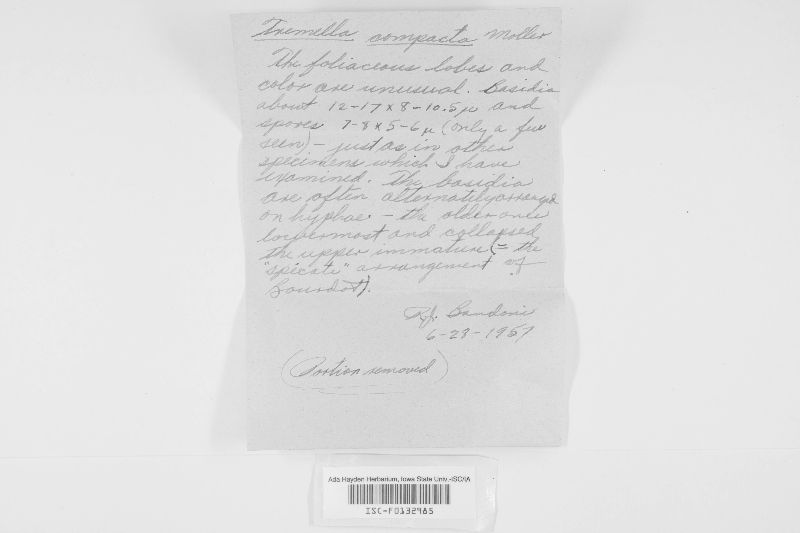 Tremella compacta Moller
The foliaceous lobes and
color are unusual. Basidia
about 12-17 x 8-10.5 μ and
spores 7-8 x 5-6 μ (only a few
seen) - just as in other
specimens which I have
examined. The basidia
are often alternately arranged
on hyphae - the older ones
lowermost and collapsed
the upper immature (= the
"spicate" arrangement of
Bourdot).
R.J. Bandoni
6-23-1957
(Portion removed)
Ada Hayden Herbarium, Iowa State Univ.-ISC/IA
ISC-F0132985